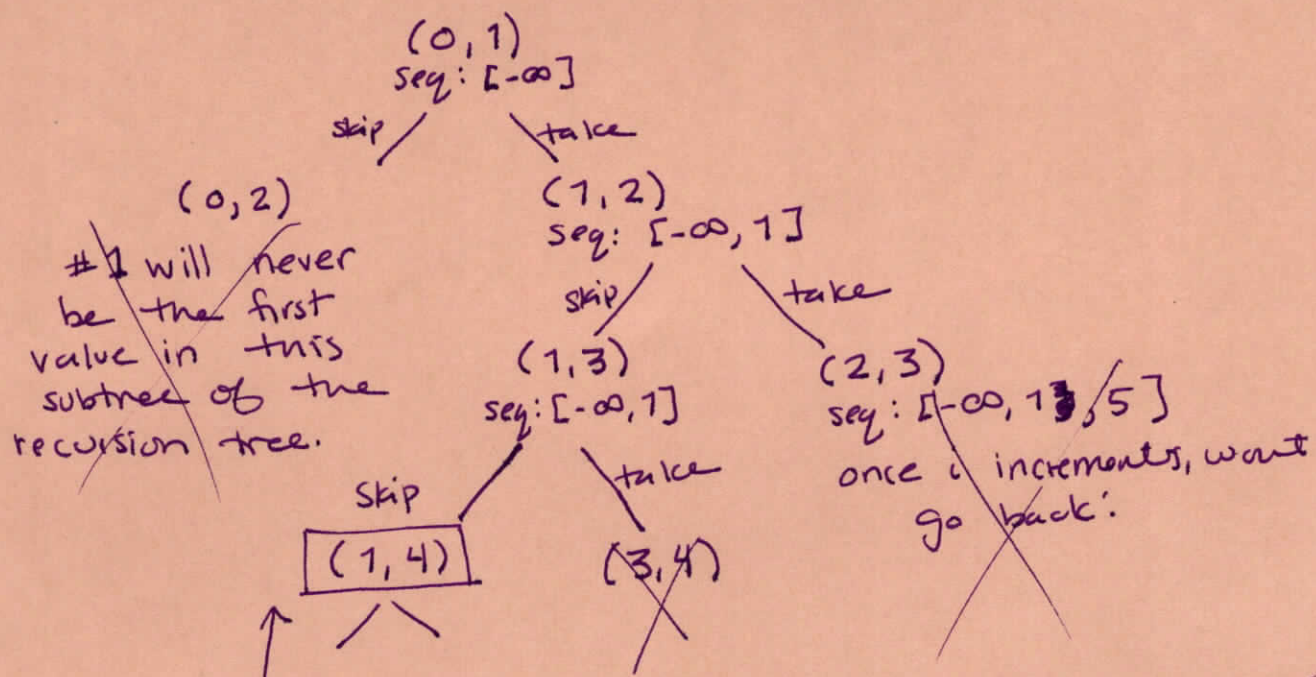 (0,1)
seq: [-∞]
skip
take
(0,2)
#1 will never
be the first
value in this
subtree of the
recursion tree.
(1,2)
seq: [-∞, 1]
skip
take
(1,3)
seq: [-∞, 1]
(2,3)
seq: [-∞, 1, 5]
once i increments, wont
go back.
skip
take
(1,4)
(3,4)